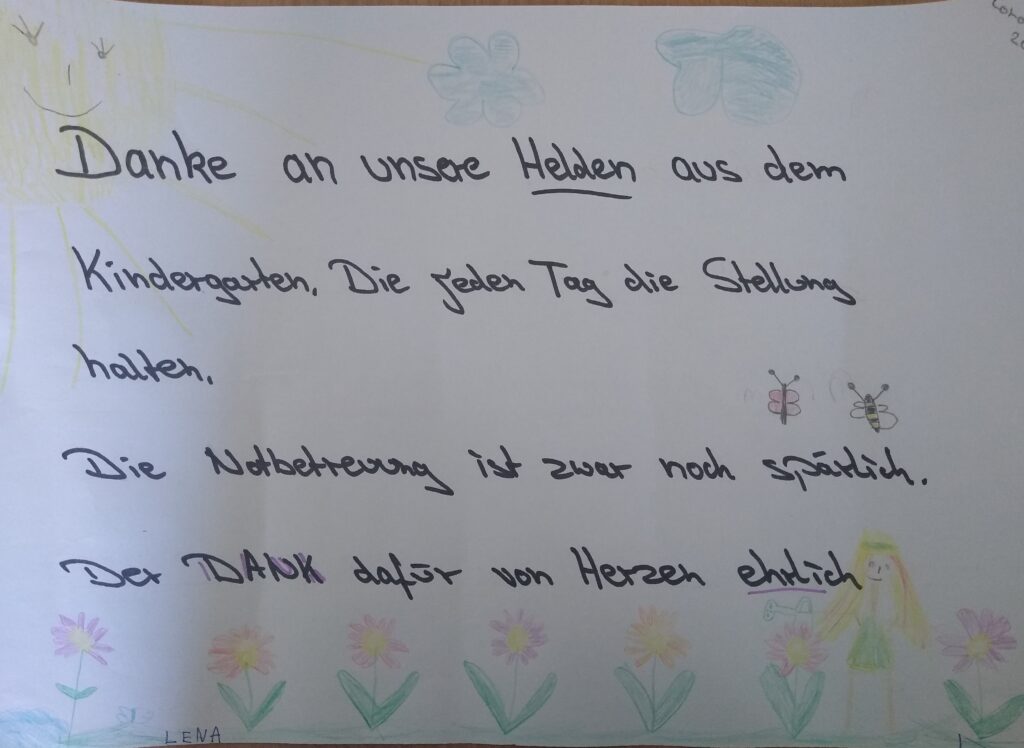 Danke an unsere Helden aus dem
Kindergarten. Die jeden Tag die Stellung
halten.
Die Notbetreuung ist zwar noch spärlich.
Der DANK dafür von Herzen ehrlich
LENA